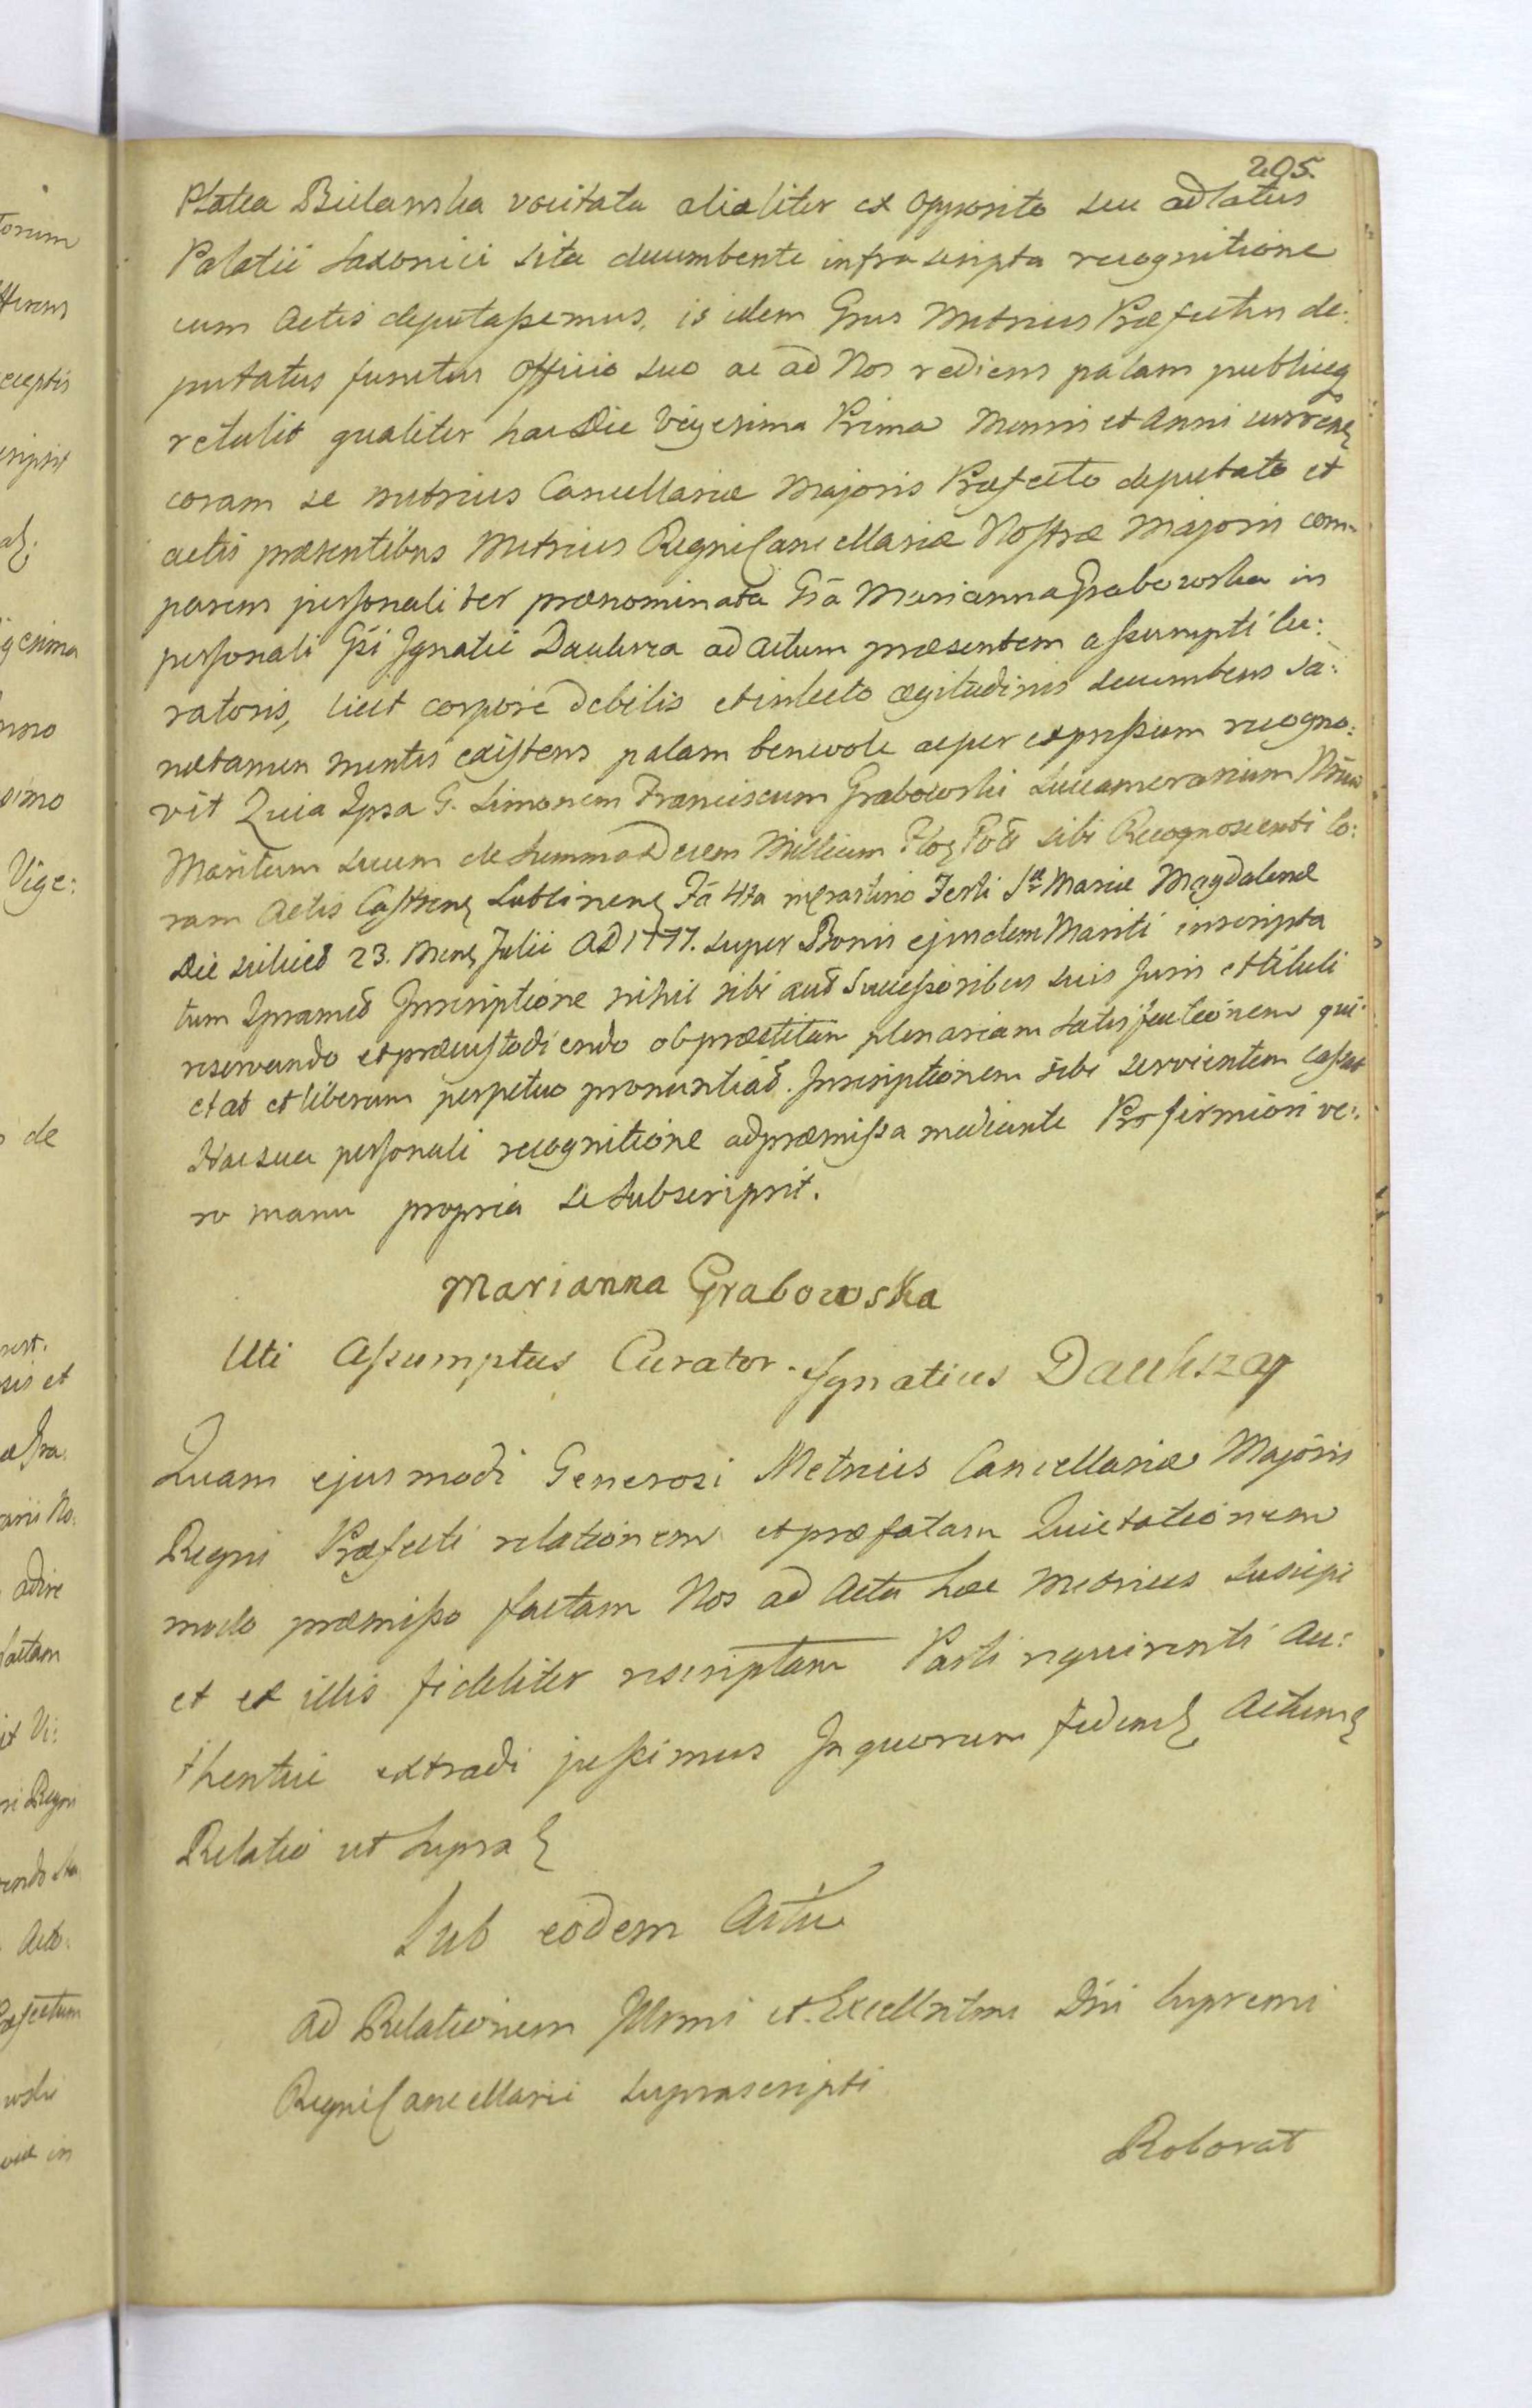 205.
Platea Bielanska vocitata alialiter ex opposito seu ad latus
Palatii Saxonici sita decumbente infrascripta recognitione
cum Actis deputaßemus, is idem Grus Metrices Præfectus de:
putatus functus Officio suo ac ad Nos rediens palam publiceq
retulit qualiter hac Die Vigesima Prima Mensis et Anni curren
coram se Metrices Cancellariæ Majoris Præfecto deputato et
actis præsentibus Metrices Regni Cancellariæ Nostræ Majoris com
parens personaliter prænominata Gsa Marianna Grabowska in
personali Gsi Ignatii Dauksza ad Actum præsentem aßumpti Cu:
ratoris, licet corpore debilis et in lecto ægitudinis decumbens sa:
na tamen mentis existens palam benevole ac per expreßum recogno:
vit Quia Ipsa G. Simonem Franciscum Grabowski Succamerarium Nrum
Maritum suum de Summa Decem Millium Flor Pol sibi Recognoscenti Co:
ram Actis Castren Lublinen Fa 4ta in crastino Festi S Mariæ Magdalenæ
Die scilicet 23. Mens Julii AD 1777. super Bonis ejusdem Mariti inscripta
tum Ipsamet Inscriptione nihil sibi aut Succeßoribus suis Juris et tituli
reservando et præcustodiendo ob præstitam plenariam satisfactionem qui:
etat et liberum perpetuo pronuntiat. Inscriptionem sibi servientem caßat
Hac sua personali recognitione ad præmißa mediante Pro firmiori ve:
ro manu propria se subscripsit.
Marianna Grabowska
Uti Aßumptus Curator. Ignatius Dauksza
Quam ejusmodi Generosi Metrices Cancellariæ Majoris
Regni Præfecti relationem et præfatam Quietationem
modo præmißo factam Nos ad Acta hæc Metrices suscipi
et ex illis fideliter rescriptam Parti requirenti au:
thentice extradi jußimus In quorum fidem Actum
Relatio ut supra
Sub eodem Actu
Ad Relationem Illrmi et Excellntmi Dni Supremi
Regni Cancellarii suprascripti
Roborat